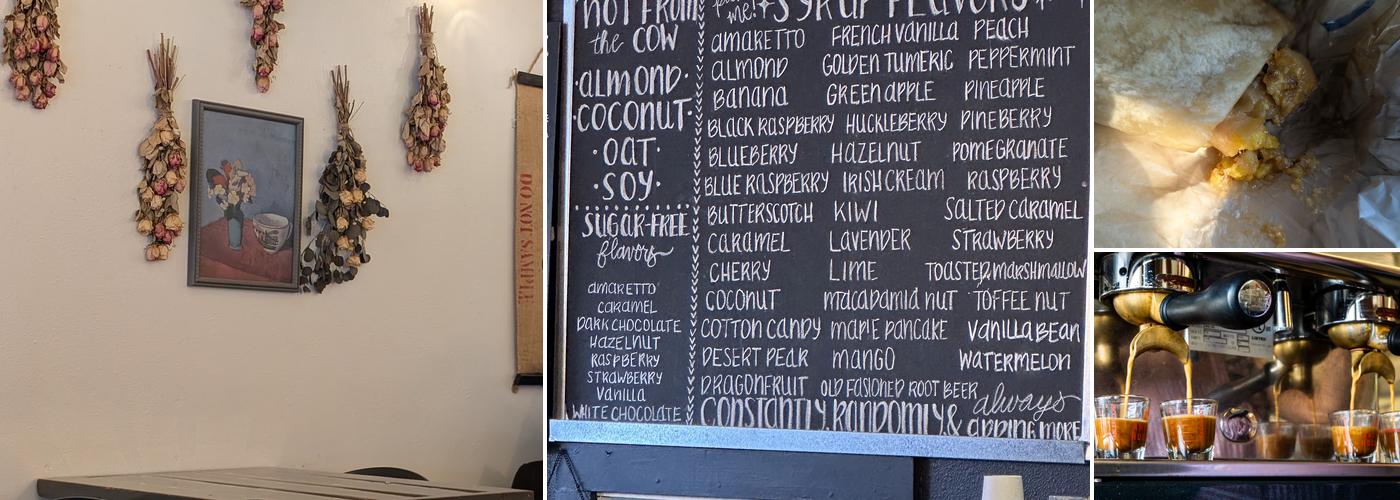 DO NOT SAMPLE
NOT FROM
the COW
·ALMOND·
·COCONUT·
·OAT·
·SOY·
SUGAR-FREE
flavors
AMARETTO
CARAMEL
DARK CHOCOLATE
HAZELNUT
RASPBERRY
STRAWBERRY
Vanilla
WHITE CHOCOLATE
me! SYRUP FLAVORS
AMARETTO FRENCH VANILLA PEACH
ALMOND GOLDEN TUMERIC PEPPERMINT
BANANA GREEN APPLE PINEAPPLE
BLACK RASPBERRY HUCKLEBERRY PINEBERRY
BLUEBERRY HAZELNUT POMEGRANATE
BLUE RASPBERRY IRISH CREAM RASPBERRY
BUTTERSCOTCH KIWI SALTED CARAMEL
CARAMEL LAVENDER STRAWBERRY
CHERRY LIME TOASTED MARSHMALLOW
COCONUT MACADAMIA NUT TOFFEE NUT
COTTON CANDY MAPLE PANCAKE VANILLA BEAN
DESERT PEAR MANGO WATERMELON
DRAGONFRUIT OLD FASIONED ROOT BEER
CONSTANTLY, RANDOMLY, & always
ADDING MORE